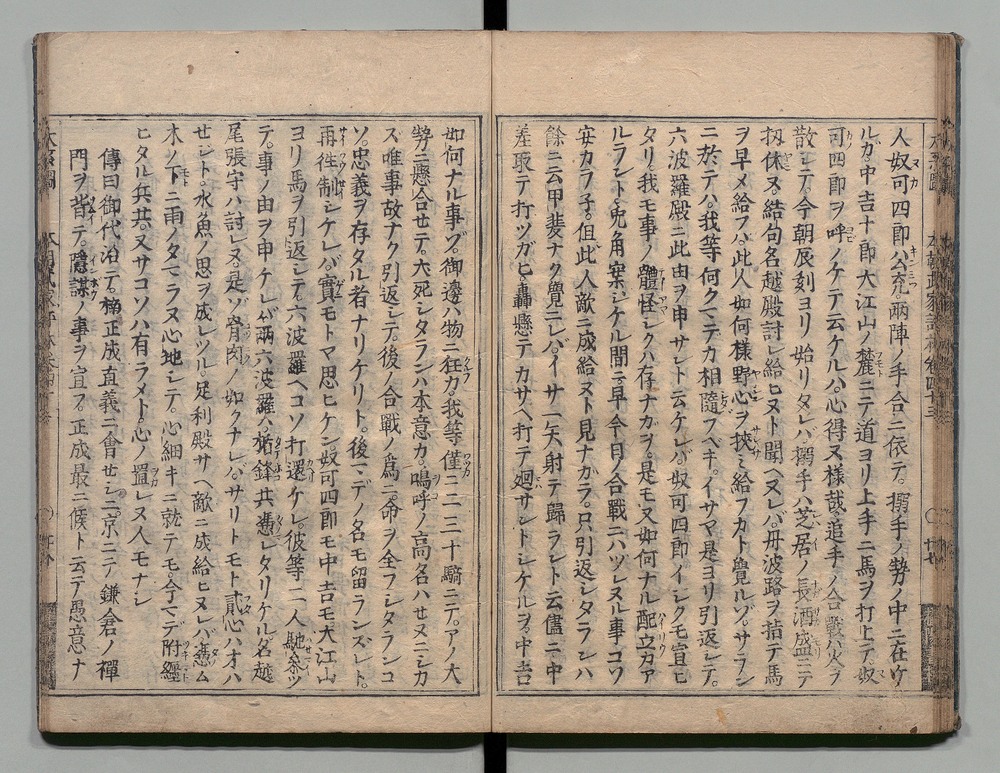 人奴可四郎公充兩陣ノ手合ニ依テ。搦手ノ勢ノ中ニ在ケ
ルカ。中吉十郎大江山ノ麓ニテ道ヨリ上手ニ馬ヲ打上テ。奴
可四郎ヲ呼ノケテ云ケルハ。心得ヌ樣哉。追手ノ合戰ハ火ヲ
散シテ。今朝辰刻ヨリ始リタレバ搦手ハ芝居ノ長酒盛ニテ
扨休ヌ。結句名越殿討レ給ヒヌト聞ヘヌレバ。丹波路ヲ指テ馬
ヲ早メ給フハ。此人如何樣野心ヲ挾ミ給フカト覺ルゾ。サラン
ニ於テハ。我等何クマデカ相隨フヘキ。イザマ是ヨリ引返シテ。
六波羅殿ニ此由ヲ申サレト云ケレバ。奴可四郎イシクモ宣モ
タリ我モ事ノ體怪シクハ存ナカヲ。是モ又如何ナル配立カア
ルラント兎角案ジケル間ニ。早今日ノ合戰ニハヅレヌル事コソ
安カラ子。但此人敵ニ成給ヌト見ナガラ。只引返シタランハ
餘ニ云甲斐ナク覺ユレバ。イサ一矢射テ歸ラント云儘ニ。中
差取テ打ツガヒ。轟懸テカサヘ打テ廻サントシケルヲ。中吉
如何ナル事ゾ。御邊ハ物ニ狂カ。我等僅ニ二三十騎ニテ。アノ大
勢ニ懸合セテ。犬死シタランハ本意カ。嗚呼ノ高名ハセヌニシカ
ズ唯事故ナク引返シテ。後ノ合戰ノ爲ニ。命ヲ全フシタランコ
ソ。忠義ヲ存タル者ナリケリト。後マデノ名モ留ランズレト。
再徃制シケレバ。實モトマ思ヒケン。奴可四郎モ中吉モ大江山
ヨリ馬ヲ引返シテ。六波羅ヘコソ打還ケレ。彼等二人馳參ツ
テ。事ノ由ヲ申ケレバ。兩六波羅ハ。楯鉾共憑レタリケル名越
尾張守ハ討レヌ。是ゾ骨肉ノ如クナレバ。サリトモト貳心ハオハ
セジト。水魚ノ思ヲ成レツル。足利殿サヘ敵ニ成給ヒヌレバ。憑ム
木ノ下ニ雨ノタマラヌ心地シテ。心細キニ就テモ。今マデ附纒
ヒタル兵共。又サコソハ有ラメト。心ノ置レヌ人モナシ
傳曰御代治テ。楠正成直義ニ會セシニ。京ニテ鎌倉ノ禪
門ヲ背テ。隱謀ノ事ヲ宣フ。正成最ニ候ト云テ愚意ナ